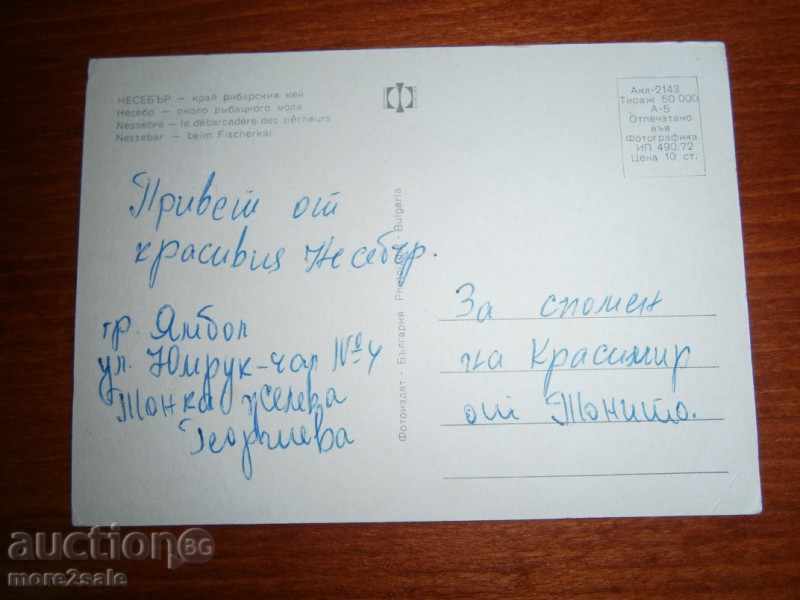 НЕСЕБЪР — край рибарския кей
Несебр — около рыбацкого мола
Nessebre — le débarcadère des pêcheurs
Nessebar — beim Fischerkai
Акл-2143
Тираж 50 000
А-5
Отпечатано
във
Фотографика
ИП 490/72
Цена 10 ст.
Привет от
красивия Несебър.
гр. Ямбол
ул. Юмрук-чал №4
Тонка Желева
Георгиева
Фотоиздат - България Bulgaria
За спомен
на Красимир
от Тонито.
auction BG
more2sale